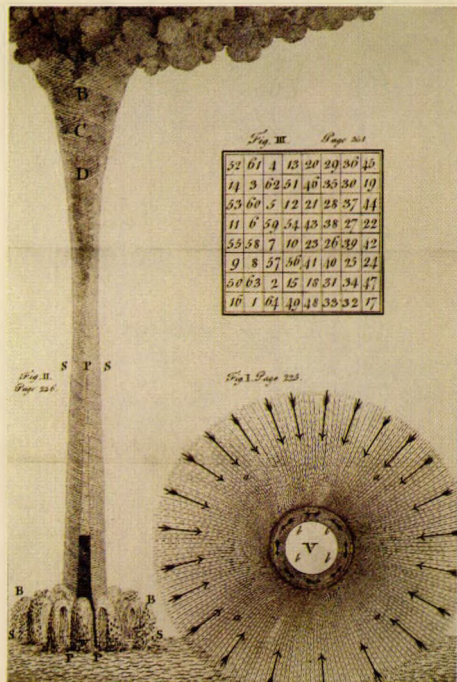 B
C
D
Fig. III. Page
52 61 4 13 20 29 36 45
14 3 62 51 46 35 30 19
53 60 5 12 21 28 37 44
11 6 59 54 43 38 27 22
55 58 7 10 23 26 39 42
9 8 57 56 41 40 25 24
50 63 2 15 18 31 34 47
16 1 64 49 48 33 32 17
S P S
Fig. II.
Page 226.
Fig I. Page 225.
a a
b b
V
b b
a a
B B
S S
P P